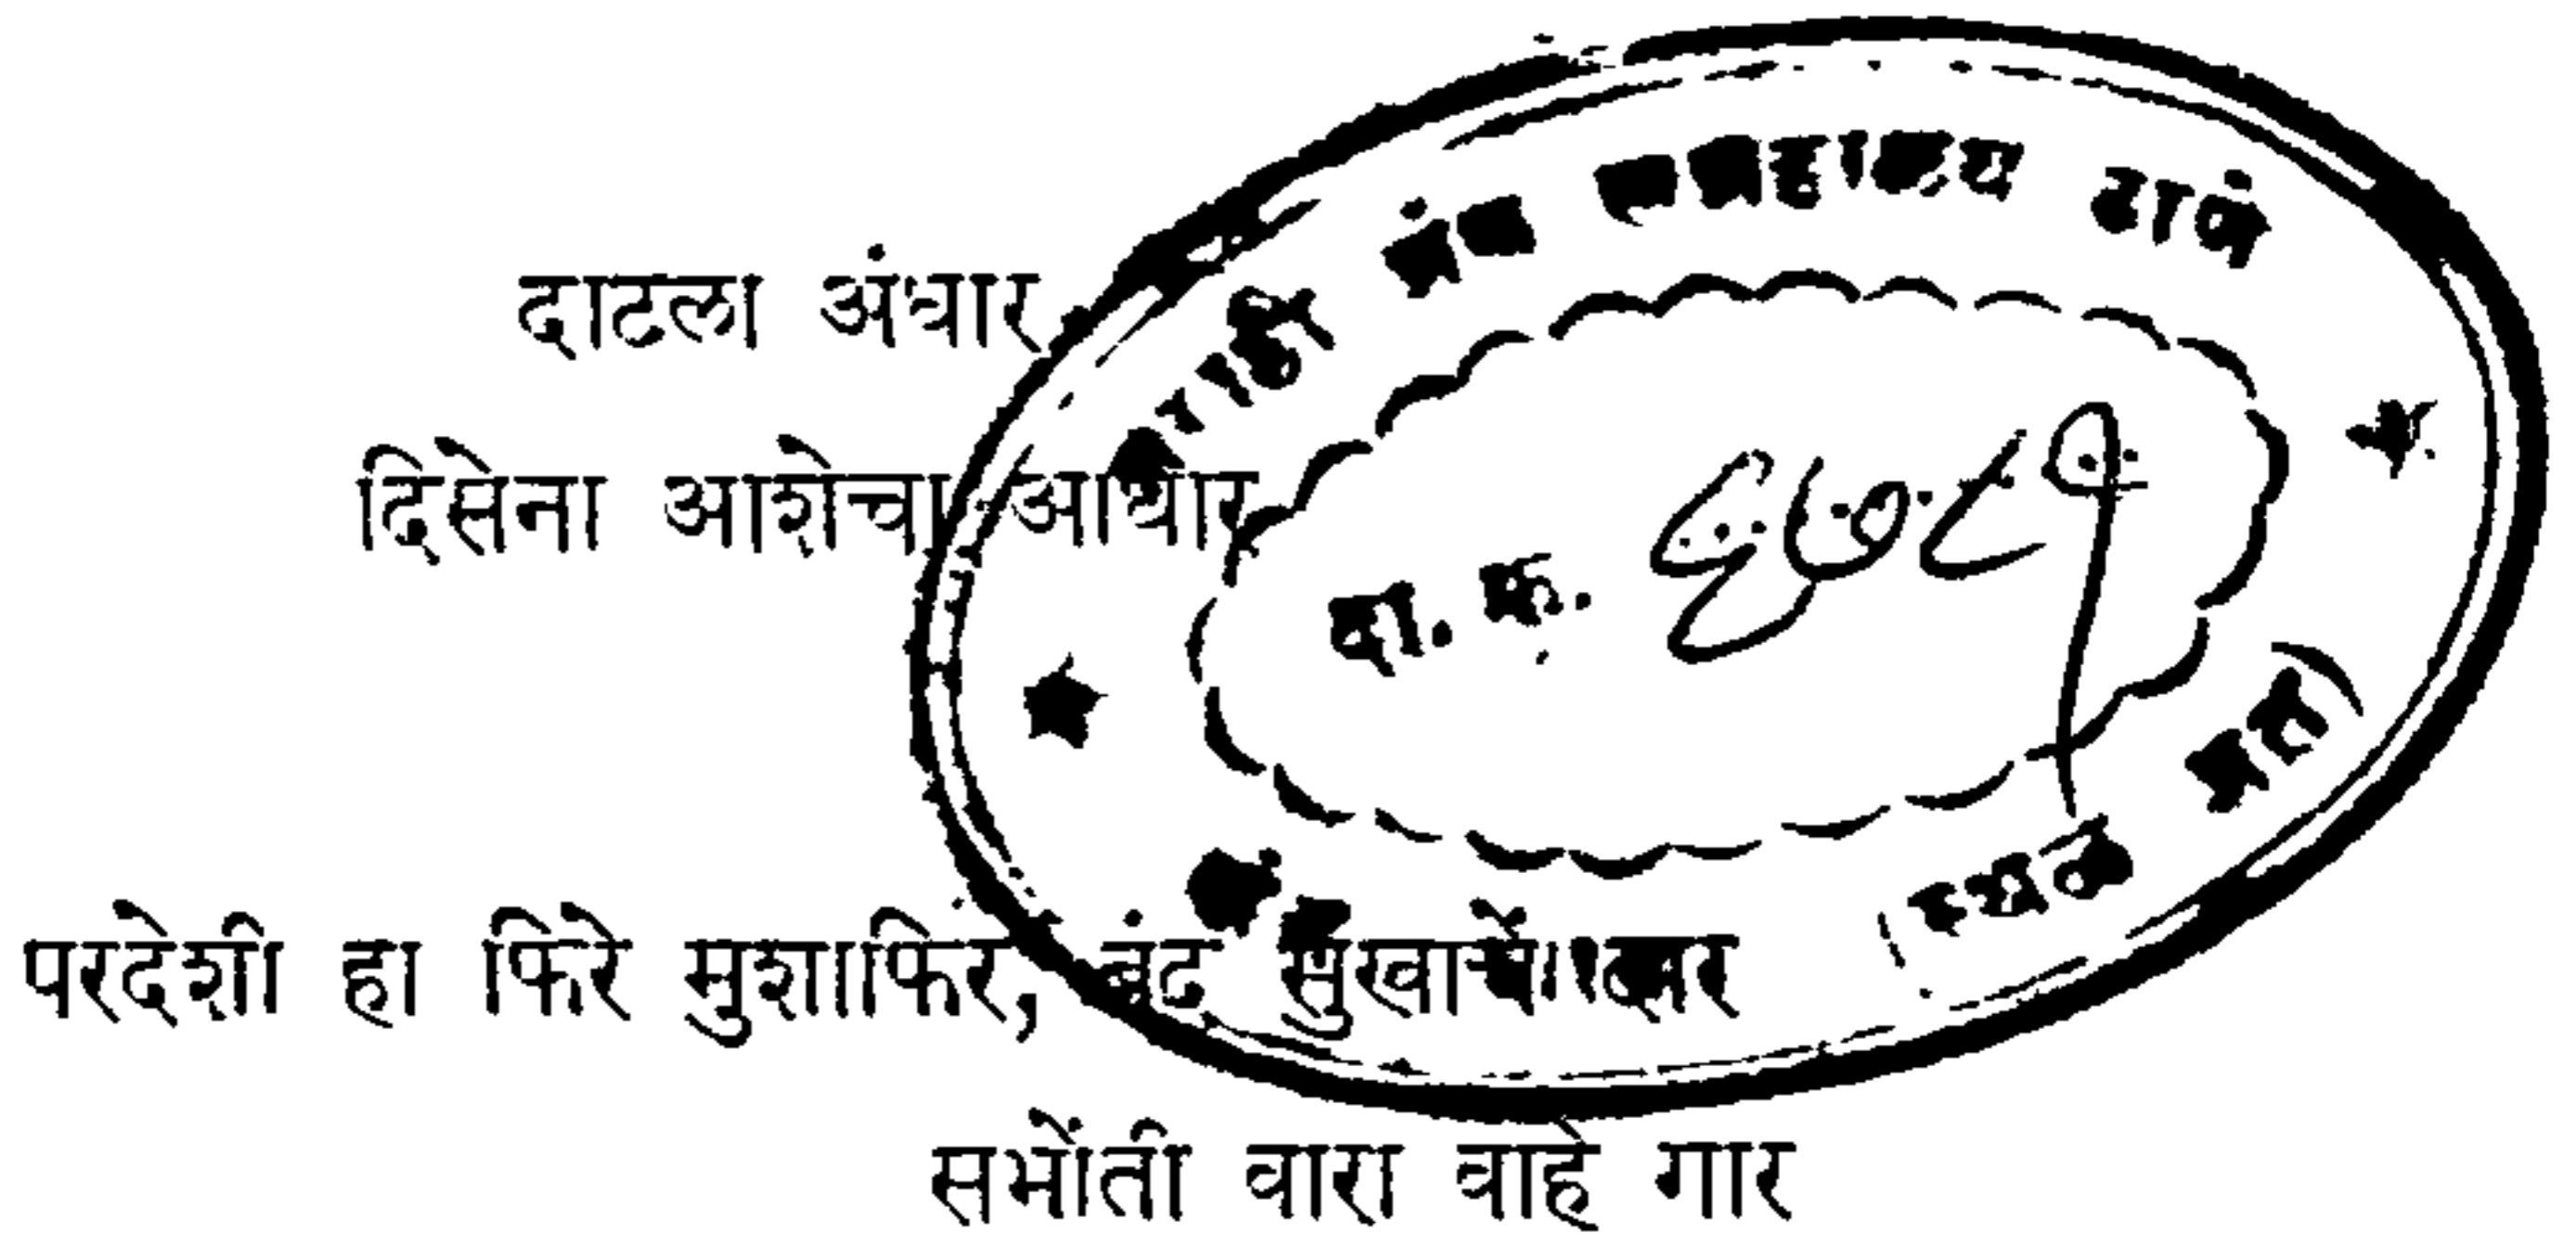 दाटला अंधार
दिसेना आशेचा आधार
परदेशी हा फिरे मुशाफिर, बंद सुखाचें द्वार
सभोंती वारा वाहे गार
मराठी ग्रंथ संग्रहालय ठाणे
दा. क्र. ६७८१
स्थळ प्रत